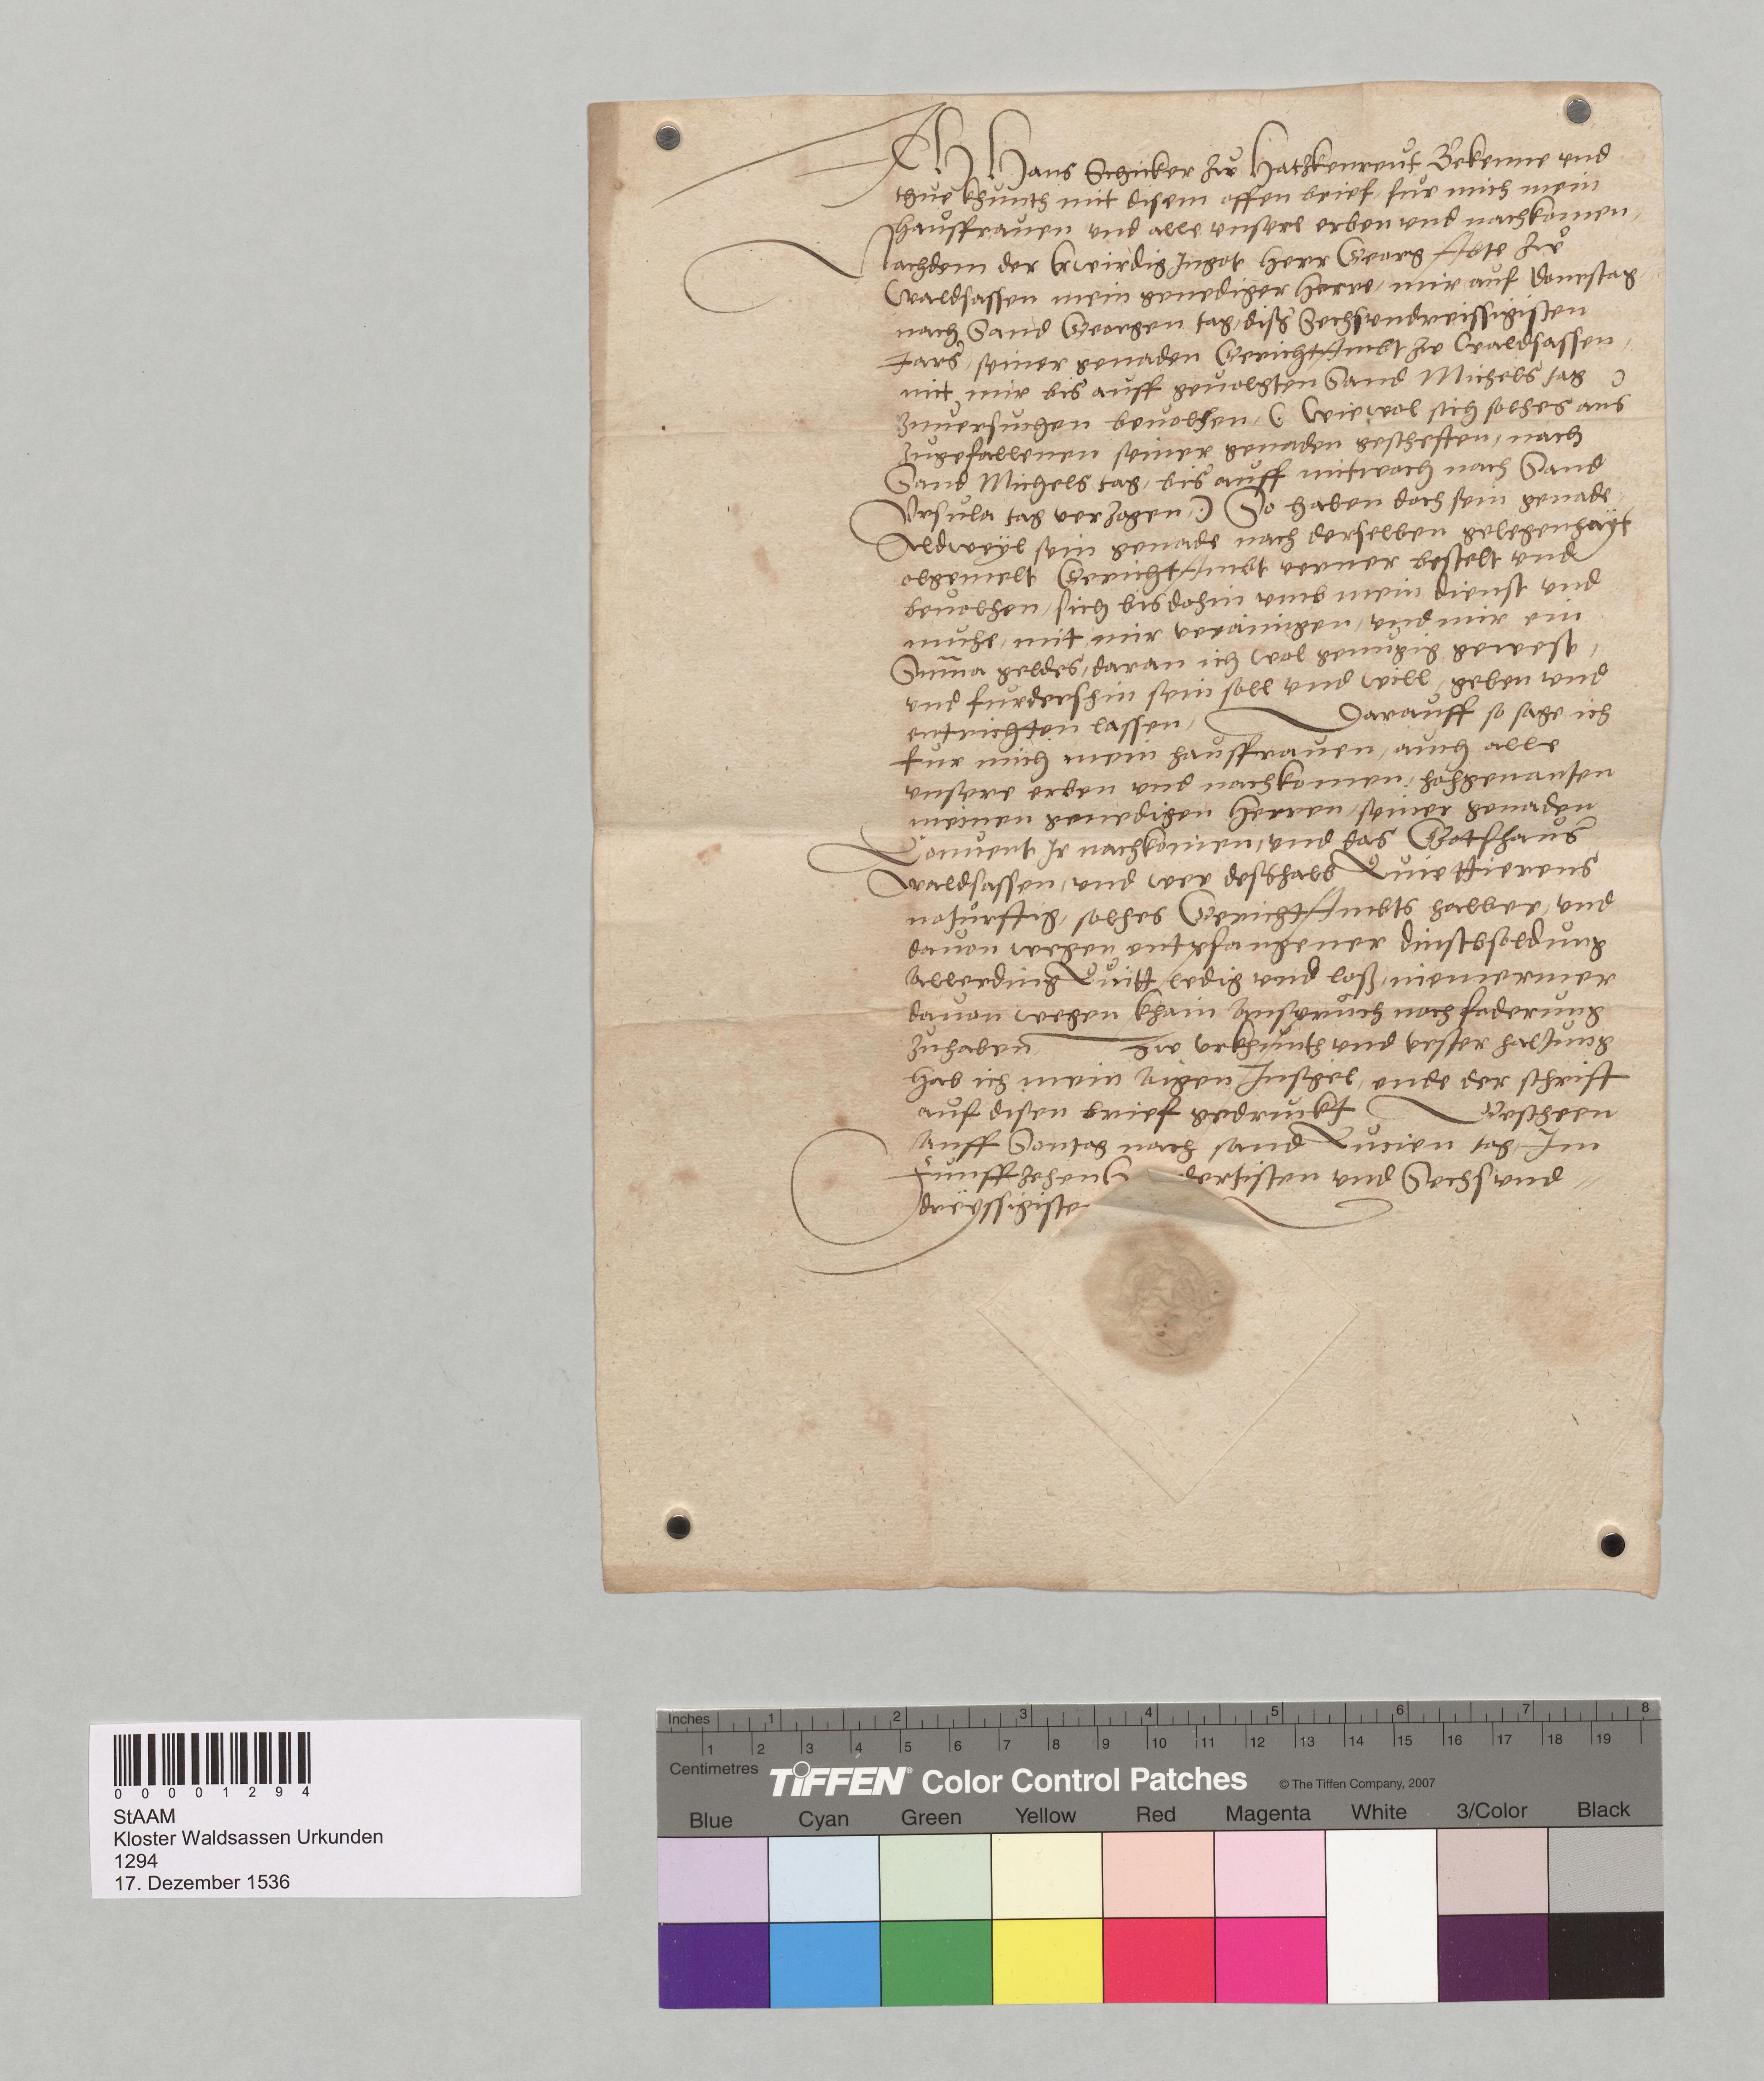 Ich Hans Schicker zw Hatzkenreut Bekenne vnd
thue khunth mit disem offen brief fur mich mein
hausfrauen vnd alle vnsere erben vnd nachkomen,
Nachdem der Erwirdig Jngot herr Georg Abte zw
Waldsassen mein genediger Herre, mir auf Donrstag
nach Sand Georgen tag, diss Sechsvndreissigisten
Jars, seiner genaden GerichtAmbt zw Waldsassen,
mit mir bis auff geuolgten Sand Michels tag
zuuersuchen beuolhen, (: Wiewol sich solhes aus
zugefallenen seiner genaden gescheften, nach
Sand Michels tag, bis auff mitwoch nach Sand
Vrsula tag verzogen, :) So haben doch sein genade,
Aldweyl sein genade nach derselben gelegenhayt
obgemelt GerichtAmbt verner bestelt vnd
beuolhen, sich bisdohin vmb mein dienst vnd
muhe, mit mir verainigen, vnd mir ein
Suma geldes, daran ich wol genugig gewest,
vnd furdershin sein soll vnd will, geben vnd
entrichten lassen, Darauff so sage ich
fur mich mein hausfrauen, auch alle
vnsere erben vnd nachkomen, hohgenanten
meinen genedigen Herren, seiner genaden
Conuent Jr nachkomen, vnd das Gotshaus
Waldsassen, vnd wer desshalb Quiettierens
noturfftig, solhes GerichtAmbts halber, vnd
dauon wegen entpfangener dinstbsoldung
Allerding Quitt ledig vnd loß, niemermer
dauon wegen khain Anspruch noch foderung
zuhaben Zw vrkhunth vnd vester haltung
Hab ich mein Aigen Jnsigel, ende der schrift
auf disen brief gedruckt Gescheen
Auff Sontag nach sand Lucien tag Im
Funffzehenh dertisten vnd Sechsvnd=
dreyssigiste
0 0 0 0 1 2 9 4
StAAM
Kloster Waldsassen Urkunden
1294
17. Dezember 1536
Inches 1 2 3 4 5 6 7 8
1 2 3 4 5 6 7 8 9 10 11 12 13 14 15 16 17 18 19
Centimetres
TIFFEN® Color Control Patches © The Tiffen Company, 2007
Blue Cyan Green Yellow Red Magenta White 3/Color Black